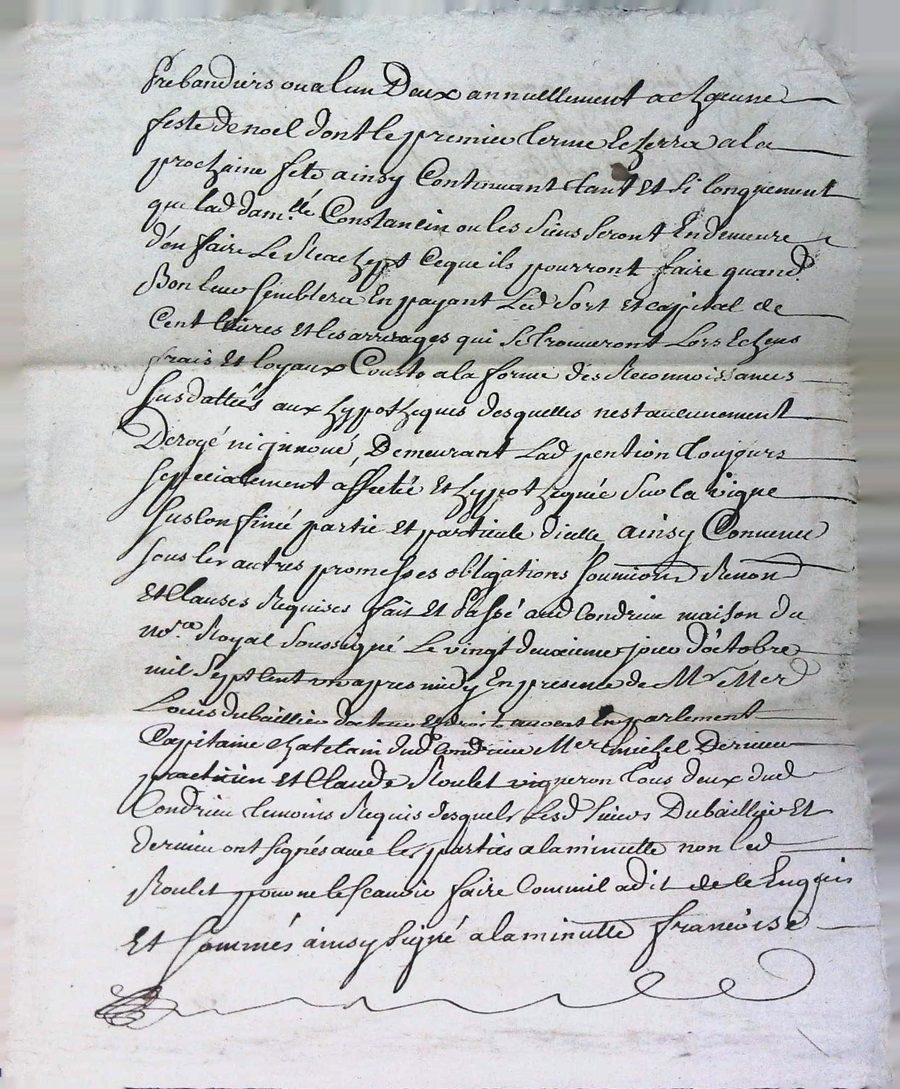 prebandiers ou a l'un Deux annuellement a chacune
feste de noel dont le premier terme Echerra a la
prochaine fete ainsy Continuant tant Et si longuement
que lad dam.lle Constancin ou les siens seront En demeure
d'en faire Le Reachept Ceque ils pourront faire quand
Bon leur semblera En payant Led sort Et capital de
Cent livres Et les arrerages qui se trouveront Lors Echeus
frais Et loyaux Cousts a la forme des Reconnoissances
susdattées aux hypotheques desquelles nest aucunement
Derogé ni jnnoué, Demeurant Lad pention toujours
specialement affectée Et hypothequée sur la vigne
susconfinée partie et particule d'icelle ainsy Convenu
sous les autres promesses obligations soumions Renon
Et Clauses Requises fait Et Passé aud Condrieu maison du
no.re Royal soussigné Le vingt deuxieme jour d'octobre
mil Sept Cent un apres midy En presence de Mr Me
Louis dubaillier docteur Es droit avocat En parlement
Capitaine chatelain dud Condrieu Me michel Derieu
practicien Et Claude Roulet vigneron tous deux dud
Condrieu temoins Requis desquels Lesd sieurs Dubaillier Et
derieu ont signés avec les parties a la minutte non led
Roulet pour ne le scavoir faire Comm'il a dit de le Enquis
Et sommés ainsy signé a la minutte francoise